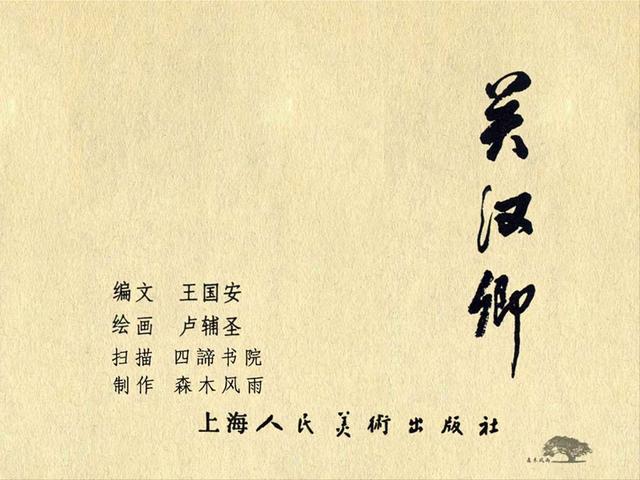 关汉卿
编文 王国安
绘画 卢辅圣
扫描 四諦书院
制作 森木风雨
上海人民美術出版社
森木风雨